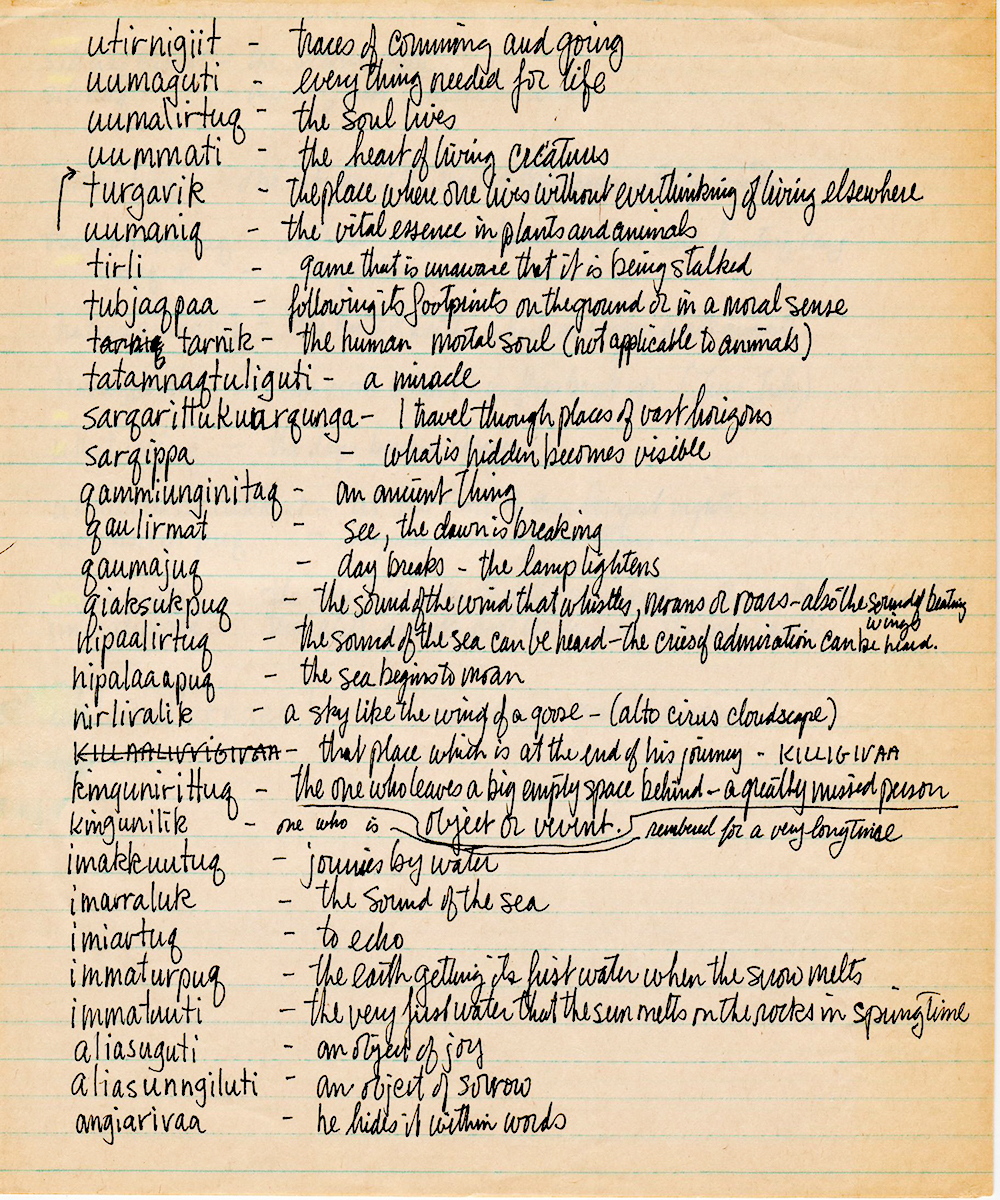 utirnigiit - traces of comming and going
uumaguti - everything needed for life
uumalirtuq - the soul lives
uummati - the heart of living creatures
turgavik - the place where one lives without ever thinking of living elsewhere
uumaniq - the vital essence in plants and animals
tirli - game that is unaware that it is being stalked
tubjaqpaa - following its footprints on the ground or in a moral sense
tarniq tarnik - the human mortal soul (not applicable to animals)
tatamnaqtuliguti - a miracle
sarqarittukuarqunga - I travel through places of vast horizons
sarqippa - what is hidden becomes visible
qammiunginitaq - an ancient thing
qaulirmat - see, the dawn is breaking
qaumajuq - day breaks - the lamp lightens
qiaksukpuq - the sound of the wind that whistles, moans or roars - also the sound of beating
wings
nipaalirtuq - the sound of the sea can be heard - the cries of admiration can be heard.
nipalaaapuq - the sea begins to moan
nirlivalik - a sky like the wing of a goose - (alto cirus cloudscape)
KILLAALIUVIGIVAA - that place which is at the end of his journey - KILLIGIVAA
kingunirittuq - the one who leaves a big empty space behind - a greatly missed person
kingunilik - one who is object or event. rembered for a very long time
imakkuutuq - journies by water
imarraluk - the sound of the sea
imiartuq - to echo
immaturpuq - the earth getting its first water when the snow melts
immatuuti - the very first water that the sun melts on the rocks in springtime
aliasuguti - an object of joy
aliasunngiluti - an object of sorrow
angiarivaa - he hides it within words